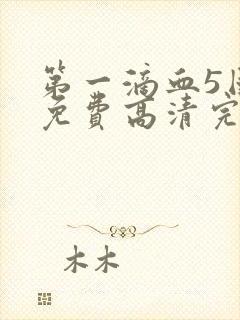 第一滴血5
免费高清完
木木